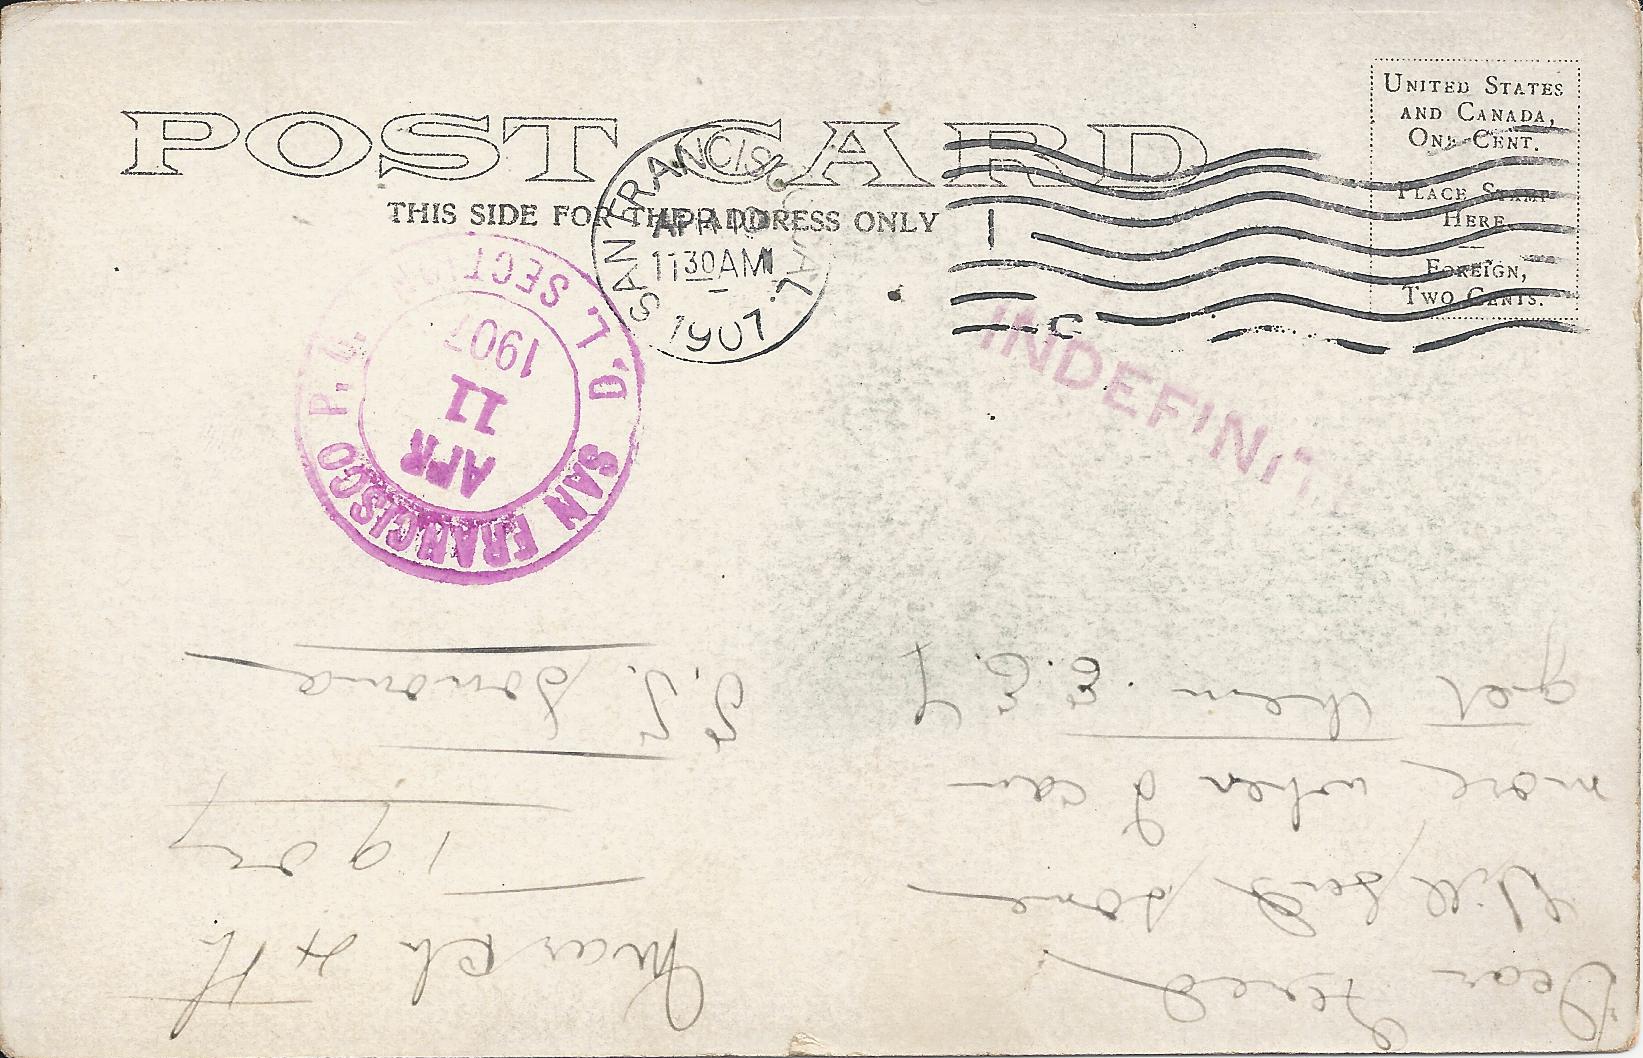 POST CARD
THIS SIDE FOR THE ADDRESS ONLY
UNITED STATES
AND CANADA,
ONE CENT.
PLACE STAMP
HERE
FOREIGN,
TWO CENTS.
SAN FRANCISCO, CAL.
APR 10
11 30 AM
1907
1
C
INDEFINITE
SAN FRANCISCO P.O.
D. L. SECTION
APR
11
1907
March 4th
1907
S.S. Sonoma
Dear Fred
Will send some
more when I can
get them. E.E.